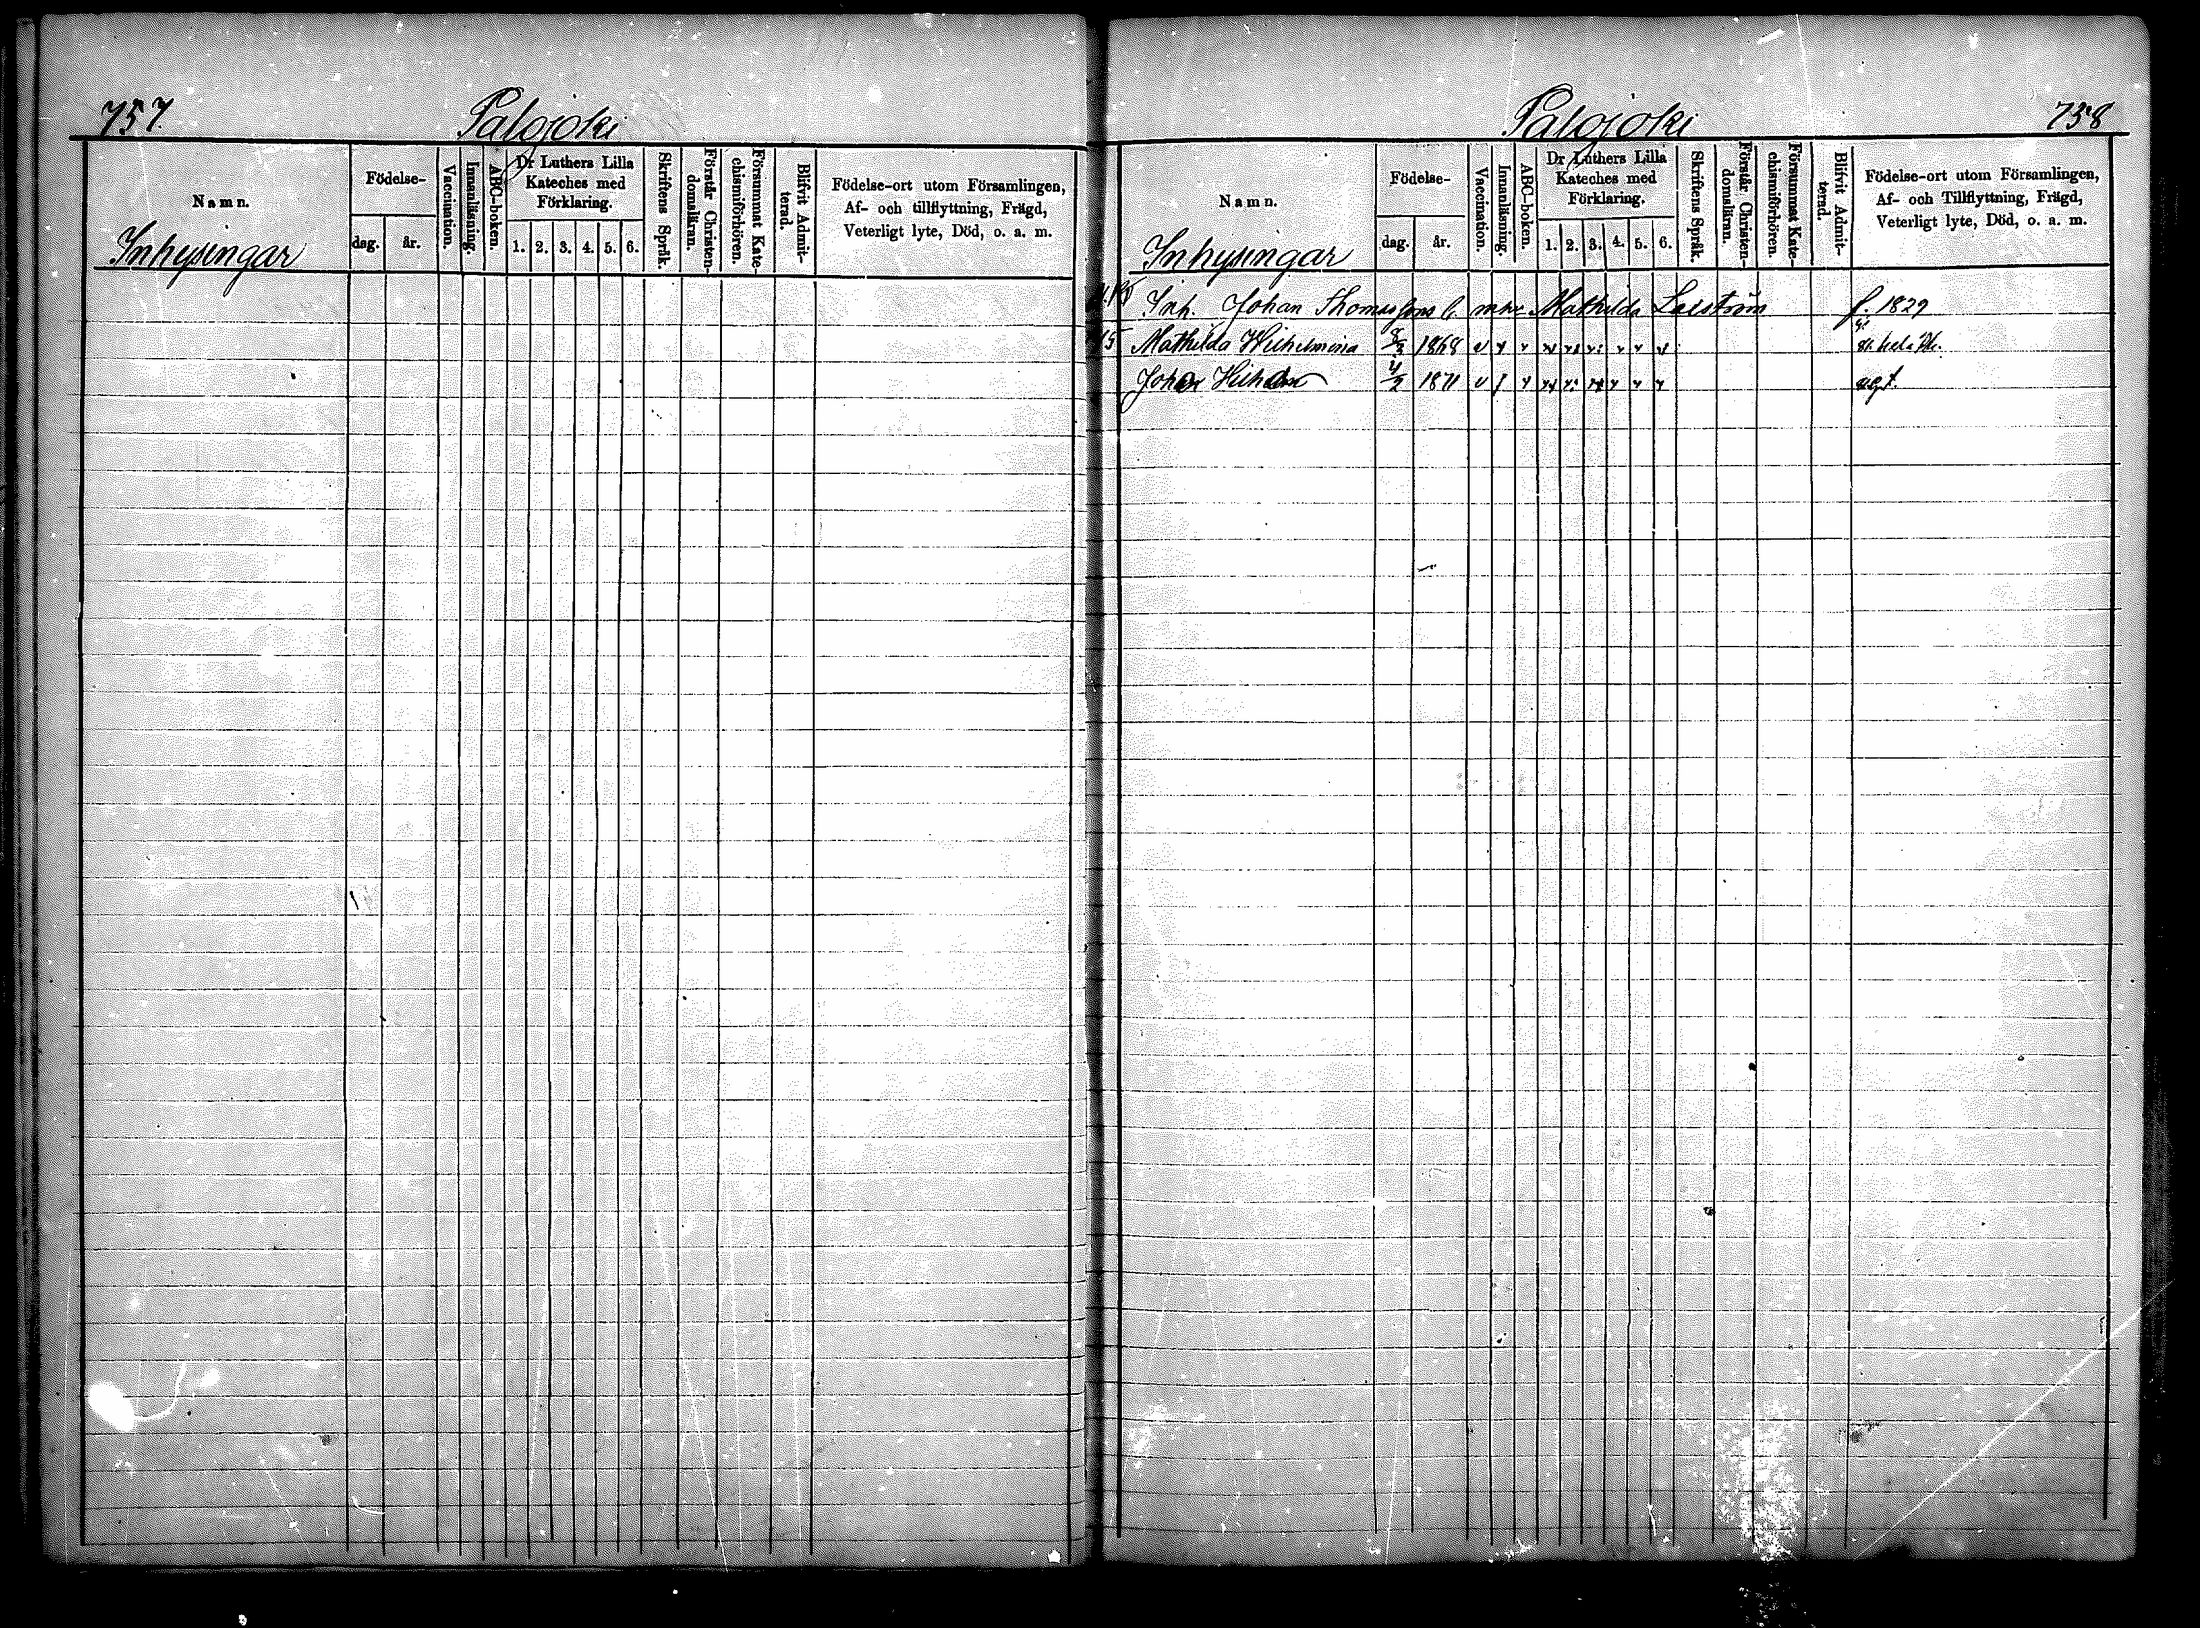 757.
Palojoki
Namn.
Födelse-
dag.
år.
Vaccination.
Innanläsning.
ABC-boken.
Dr Luthers Lilla
Kateches med
Förklaring.
1. 2. 3. 4. 5. 6.
Skriftens Språk.
Förstår Christen-
domsläran.
Försummat Kate-
chismiförhören.
Blifvit Admit-
terad.
Födelse-ort utom Församlingen,
Af- och tillflyttning, Frägd,
Veterligt lyte, Död, o. a. m.
Inhysingar
Palojoki
758
Namn.
Födelse-
dag.
år.
Vaccination.
Innanläsning.
ABC-boken.
Dr Luthers Lilla
Kateches med
Förklaring.
1. 2. 3. 4. 5. 6.
Skriftens Språk.
Förstår Christen-
domsläran.
Försummat Kate-
chismiförhören.
Blifvit Admit-
terad.
Födelse-ort utom Församlingen,
Af- och Tillflyttning, Frägd,
Veterligt lyte, Död, o. a. m.
Inhysingar
Inh. Johan Thomasson Mathilda f. 1829
Mathilda Wilhelmina 1868
Johan 4/2 1871